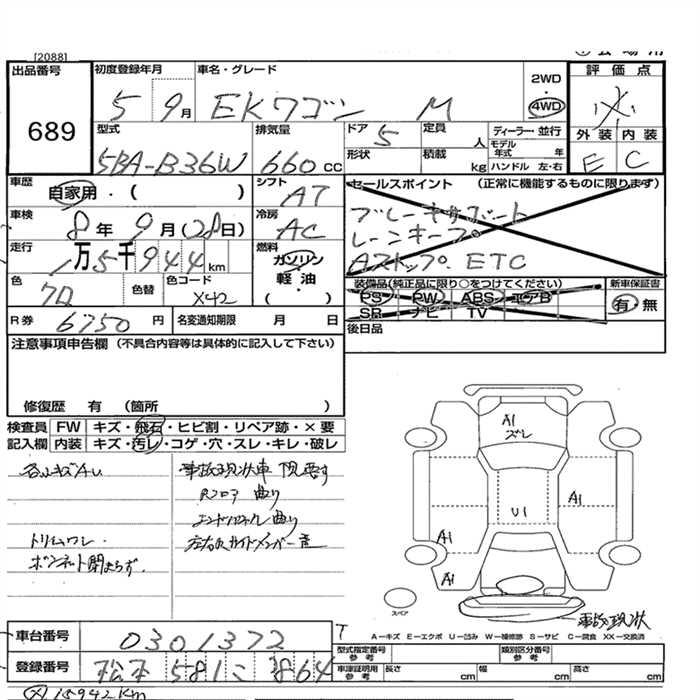 [2088]
出品番号
689
初度登録年月
5 9月
車名・グレード
EKワゴン M
2WD
・
4WD
評価点
外装 内装
E C
型式
5BA-B36W
排気量
660 CC
ドア 5
形状
定員
人
積載
kg
ディーラー・並行
モデル年式 年
ハンドル 左・右
車歴
自家用・( )
シフト
AT
セールスポイント (正常に機能するものに限ります)
ブレーキサポート
レーンキープ
Aストップ. ETC
車検
8年 9月(28日)
冷房
AC
走行
1万5千944km
燃料
ガソリン
・
軽油・
( )
色
色替
色コード
X42
装備品(純正品に限り○をつけてください)
PS PW ABS エアB
SR ナビ TV
新車保証書
有・無
R券 6750円
名変通知期限 月 日
後日品
注意事項申告欄 (不具合内容等は具体的に記入して下さい)
修復歴 有 (箇所 )
検査員記入欄
FW キズ・飛石・ヒビ割・リペア跡・×要
内装 キズ・汚レ・コゲ・穴・スレ・キレ・破レ
トリムワレ
ボンネット閉まらず.
事故現状車
Rフロア 曲り
エンドパネル 曲り
A1
ズレ
U1
A1
A1
A1
スペア
事故現状
A−キズ E−エクボ U−凹み W−補修跡 S−サビ C−腐食 XX−交換済
車台番号
0301372
登録番号
松本 581 こ 864
型式指定番号
参考
類別区分番号
参考
車庫証明用
参考
長さ cm
幅 cm
高さ cm
15942Km